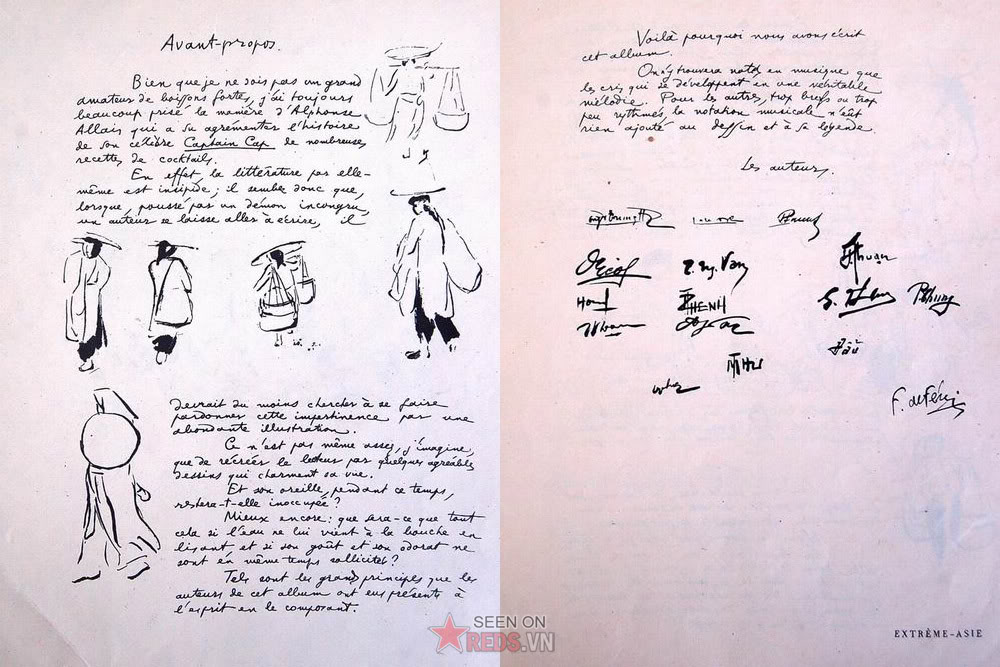 Avant-propos.
Bien que je ne sois pas un grand
amateur de boissons fortes, j'ai toujours
beaucoup prisé la manière d'Alphonse
Allais qui a su agrémenter l'histoire
de son célèbre Captain Cap de nombreuses
recettes de cocktails.
En effet, la littérature par elle-
même est insipide; il semble donc que,
lorsque, poussé par un démon incongru,
un auteur se laisse aller à écrire, il
devrait du moins chercher à se faire
pardonner cette impertinence par une
abondante illustration.
Ce n'est pas même assez, j'imagine,
que de récréer le lecteur par quelques agréables
dessins qui charment sa vue.
Et son oreille, pendant ce temps,
restera-t-elle inoccupée?
Mieux encore: que sera-ce que tout
cela si l'eau ne lui vient à la bouche en
lisant et si son goût et son odorat ne
sont en même temps sollicités?
Tels sont les grands principes que les
auteurs de cet album ont eus présents à
l'esprit en le composant.
Voilà pourquoi nous avons écrit
cet album.
On y trouvera notés en musique que
les cris qui se développent en une véritable
mélodie. Pour les autres, trop brefs ou trop
peu rythmés, la notation musicale n'eût
rien ajouté au dessin et à sa légende.
Les auteurs.
Thuan
KHENH
Phung
THU
Dâu
F. de Fénis
EXTRÊME-ASIE
SEEN ON
REDS.VN